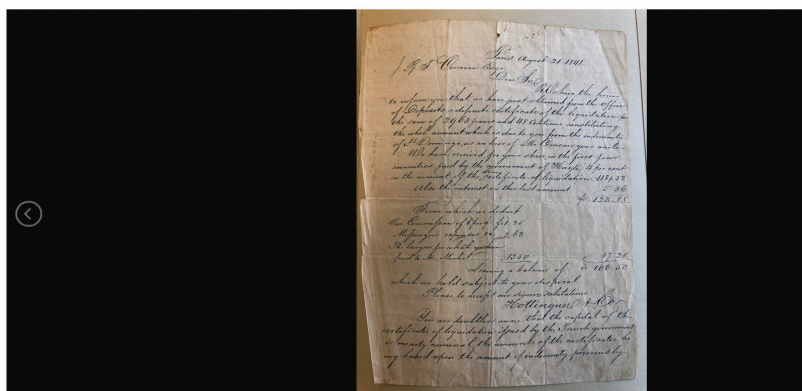 Paris August 21. 1841.
J. R. T. Cornian Esqr.
Dear Sir
We have the honor
to inform you that we have just obtained from the office
of Deposits a definite certificate of the liquidation for
the sum of 2963 francs and 48 centimes, constituting
the whole amount which is due to you from the indemnity
of St. Domingo, as an heir of Mr. your uncle
We have received for your share in the first four
annuities paid by the government of Hayti, 4 per cent
on the amount of the Certificate of liquidation
Also the interest on the last amount
From which we deduct
Our Commission of
Messenger expenses
The lawyer for which
paid to Mr. 1350 17.
Leaving a balance of
which we hold subject to your disposal.
Please to accept our sincere salutations
Hottinguer & Co
You are doubtless aware that the capital of the
certificates of liquidation issued by the French government
is merely nominal, the amounts of the certificates be
ing based upon the amount of indemnity previously